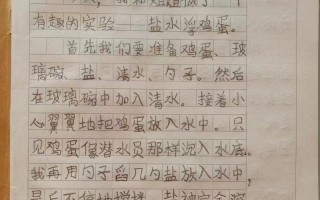 有趣的实验——盐水浮鸡蛋。
首先我们要准备鸡蛋、玻
璃碗、盐、清水、勺子。然后
在玻璃碗中加入清水。接着小
心翼翼地把鸡蛋放入水中。只
见鸡蛋像潜水员那样沉入水底。
我再用勺子舀几勺盐放入水中，